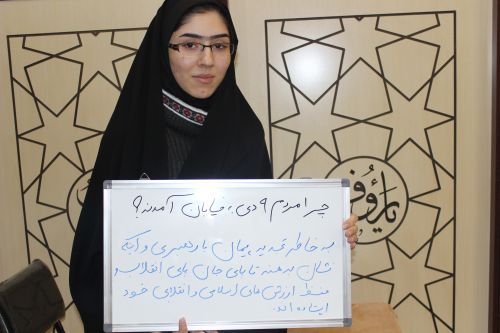 چرا مردم ۹ دی به خیابان آمدند؟
به خاطر تجدید پیمان با رهبری و اینکه
نشان بدهند تا پای جان پای انقلاب و
حفظ ارزش های اسلامی و انقلابی خود
ایستاده اند.
یا رؤوف